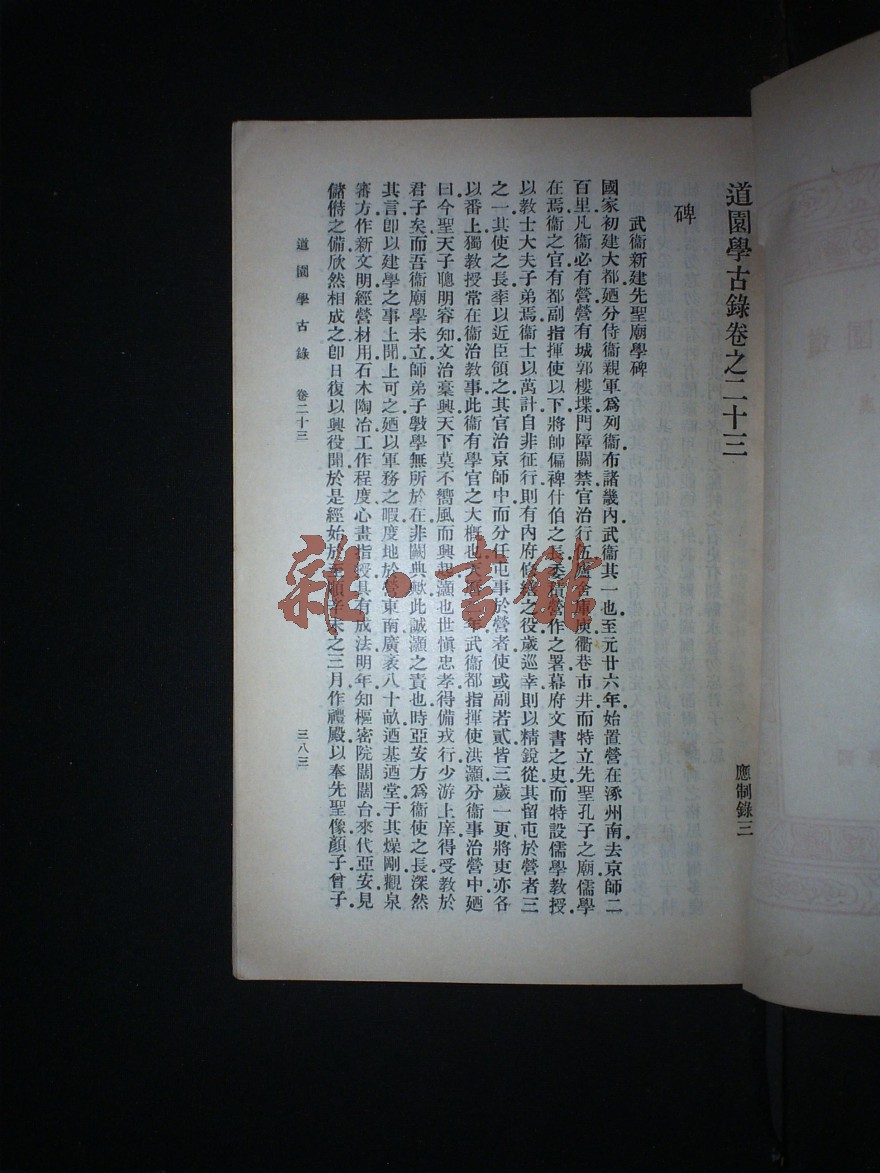 道園學古錄卷之二十三
應制錄三
碑
武衞新建先聖廟學碑
國家初建大都廼分侍衞親軍爲列衞布諸畿內武衞其一也至元廿六年始置營在涿州南去京師二
百里凡衞必有營營有城郭樓堞門障關禁官治行伍廬舍庫庾衢巷市井而特立先聖孔子之廟儒學
在焉衞之官有都副指揮使以下將帥偏裨什伯之長委積營作之署幕府文書之史而特設儒學教授
以教士大夫子弟焉衞士以萬計自非征行則有內府修繕之役歲巡幸則以精銳從其留屯於營者三
之一其使之長率以近臣領之其官治京師中而分任屯事於營者使或副若貳皆三歲一更將吏亦各
以番上獨教授常在衞治教事此衞有學官之大槪也天年武衞都指揮使洪灝分衞事治營中廼
曰今聖天子聰明容知文治稾興天下莫不嚮風而興起灝也世愼忠孝得備戎行少游上庠得受教於
君子矣而吾衞廟學未立師弟子斅學無所於在非闕典歟此誠灝之責也時亞安方爲衞使之長深然
其言卽以建學之事上聞上可之廼以軍務之暇度地於營東南廣袤八十畝迺基迺堂于其燥剛觀泉
審方作新文明經營材用石木陶冶工作程度心畫指授具有成法明年知樞密院闊闊台來代亞安見
儲偫之備欣然相成之卽日復以興役聞於是經始於至順辛未之三月作禮殿以奉先聖像顏子曾子
道園學古錄 卷二十三
三八三
雜·書館